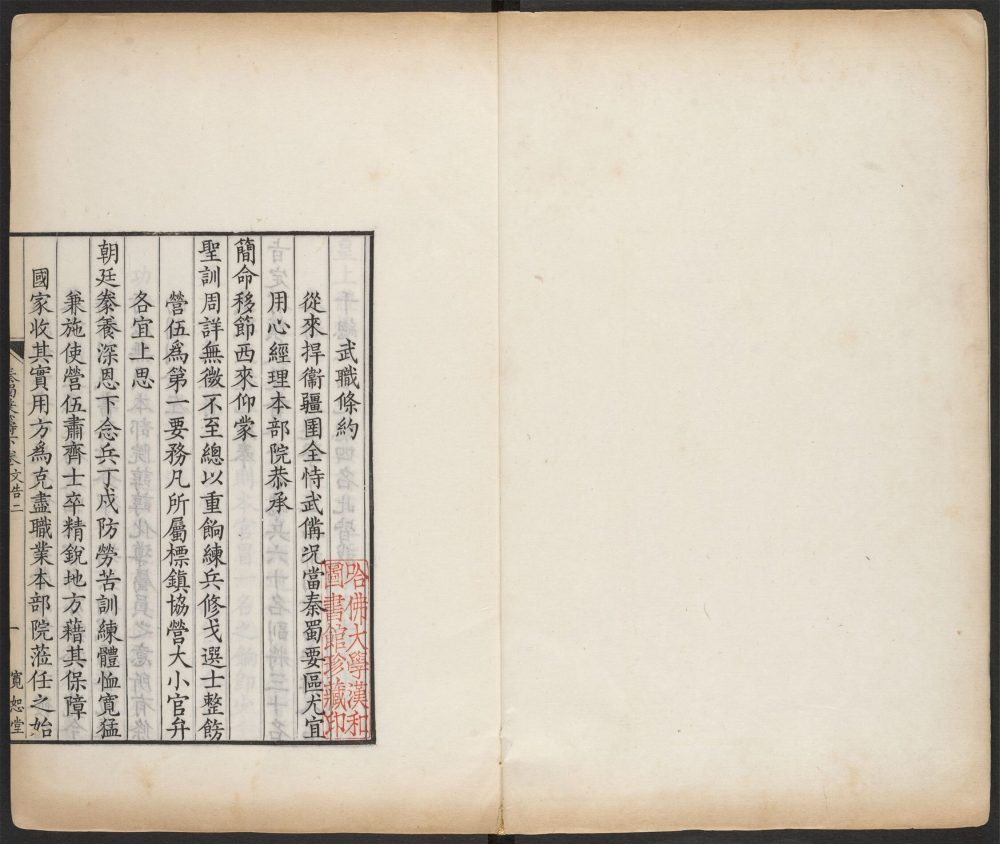 武職條約
從來捍衞疆圉全恃武備况當秦蜀要區尤宜
用心經理本部院恭承
簡命移節西來仰蒙
聖訓周詳無微不至總以重餉練兵修戈選士整飭
營伍爲第一要務凡所屬標鎮協營大小官弁
各宜上思
朝廷豢養深恩下念兵丁戍防勞苦訓練體恤寬猛
兼施使營伍肅齊士卒精銳地方藉其保障
國家收其實用方爲克盡職業本部院蒞任之始
卷文告二
一
寬恕堂
哈佛大學漢和
圖書館珍藏印